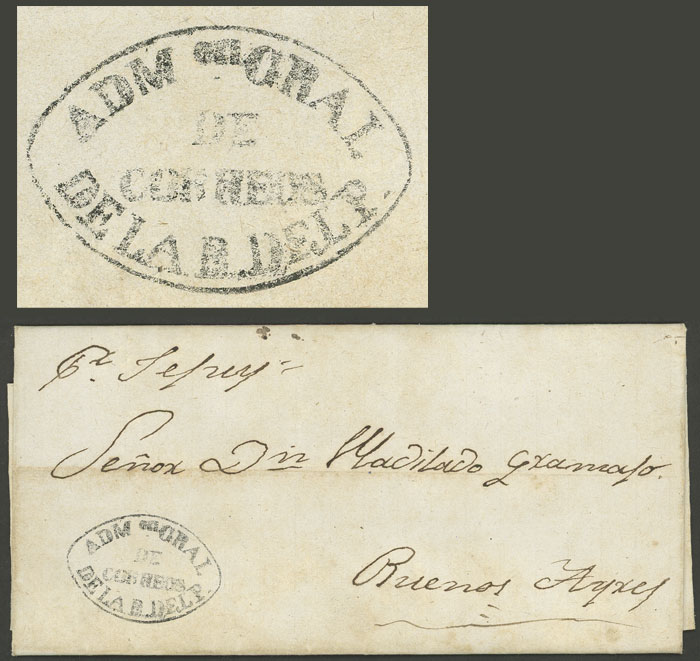 ADM DEL GRAL
DE
CORREOS
DE LA R. DEL P.
Señor Dn Gramajo
Buenos Ayres
ADM DEL GRAL
DE
CORREOS
DE LA R. DEL P.